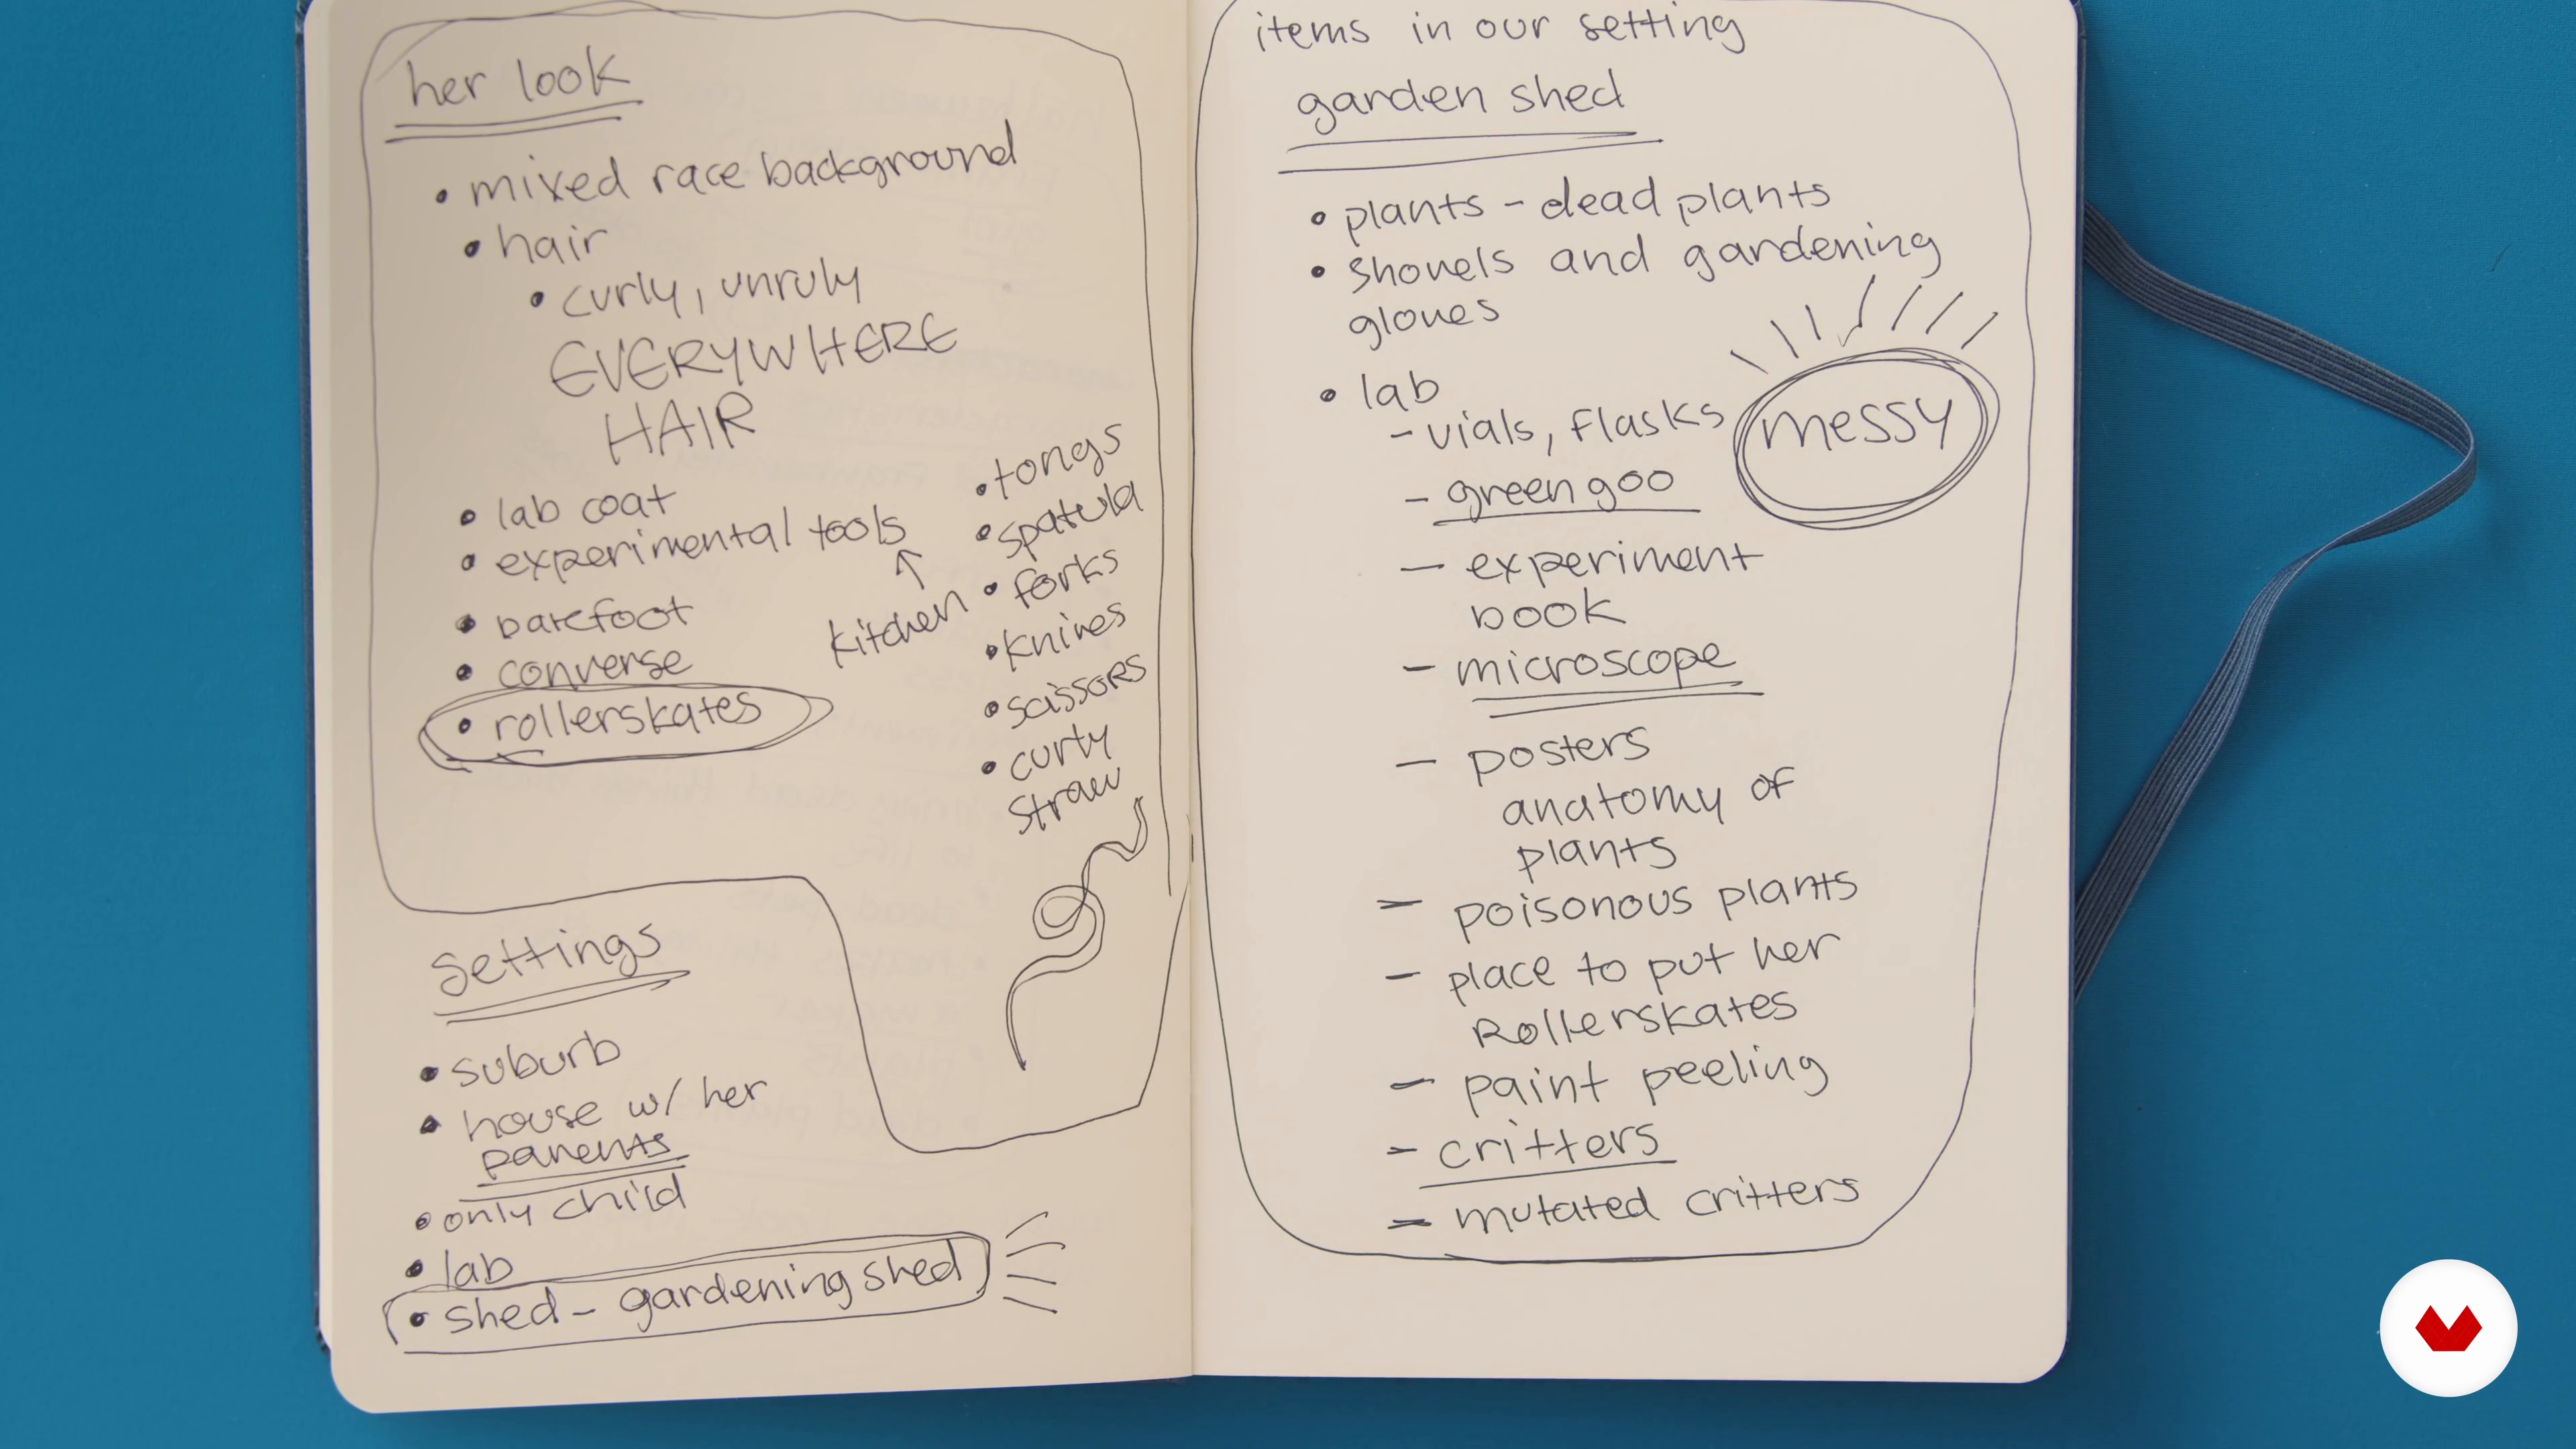 her look
• mixed race background
• hair
• curly, unruly
EVERYWHERE
HAIR
• lab coat
• experimental tools
kitchen
• tongs
• spatula
• forks
• knives
• scissors
• curly
straw
• barefoot
• converse
• rollerskates
settings
• suburb
• house w/ her
parents
• only child
• lab
• shed - gardening shed
items in our setting
garden shed
• plants - dead plants
• shovels and gardening
gloves
• lab
- vials, flasks
messy
- green goo
- experiment
book
- microscope
- posters
anatomy of
plants
- poisonous plants
- place to put her
Rollerskates
- paint peeling
- critters
- mutated critters